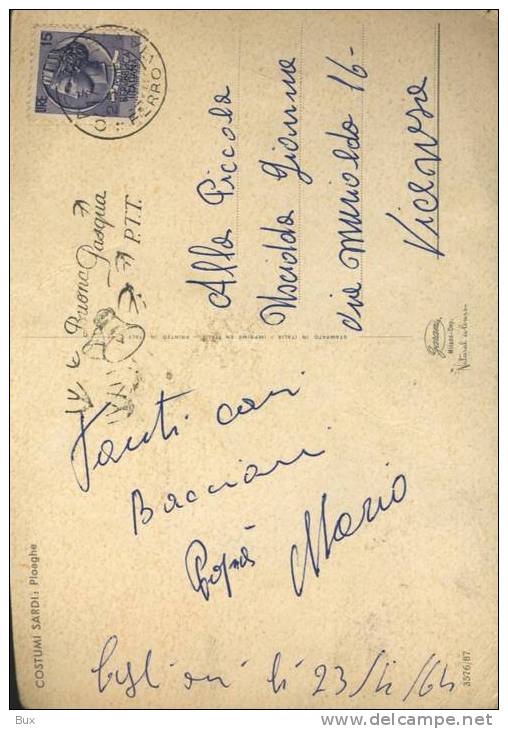 COSTUMI SARDI: Ploaghe
Tanti cari
Bacioni
Papà Mario
li 23/4/64
3576/87
STAMPATO IN ITALIA / IMPRIMÉ EN ITALIE - PRINTED IN ITALY
Garami
Milano-Dep.
Natural colour
Buona Pasqua
P.T.T.
LIRE 15
FERRO
Alla Piccola
Gianna
via Murialdo 16-
Vicenza
Bux
www.delcampe.net